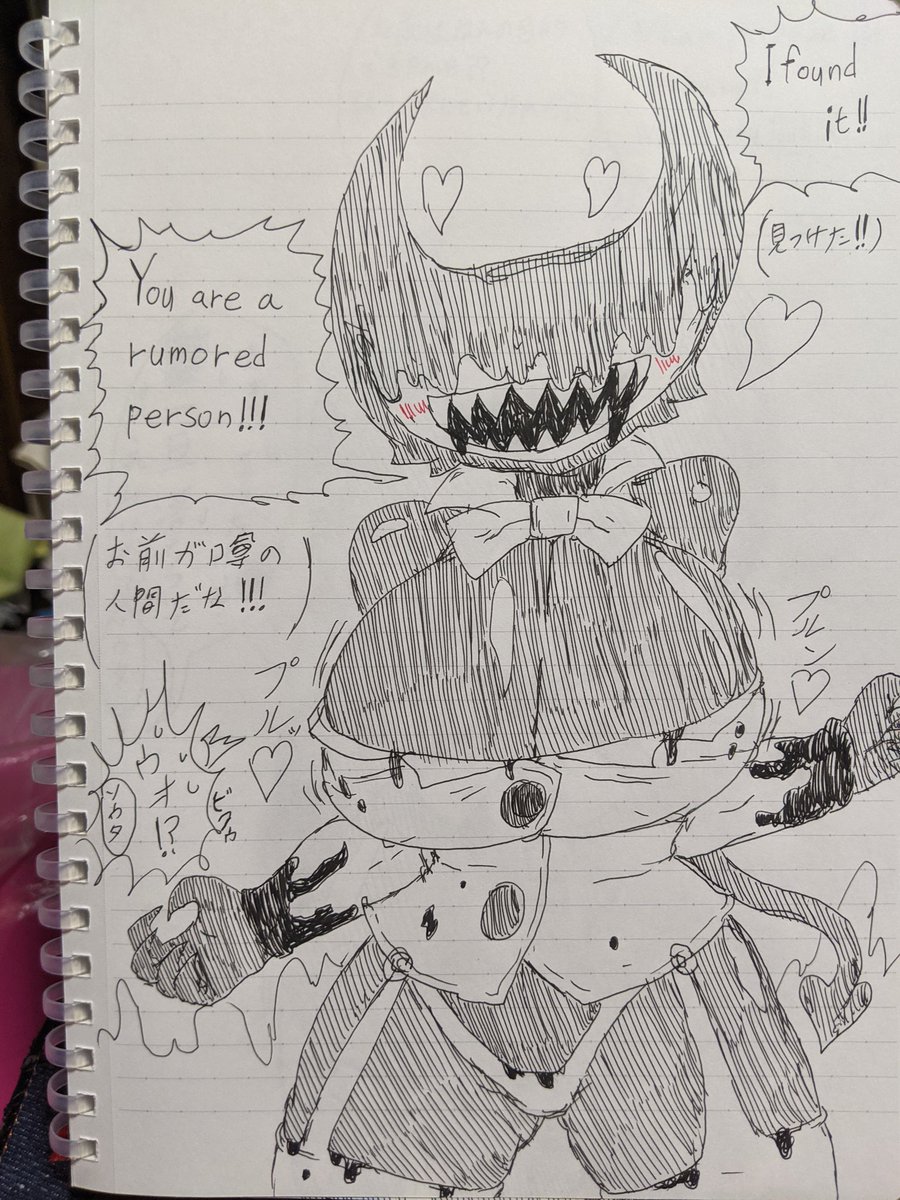 I found
it!!
(見つけた!!)
You are a
rumored
person!!!
(お前が噂の
人間だな!!!)
プルッ♡
プルン♡
ウオ!?
ビクゥ
ソウタ